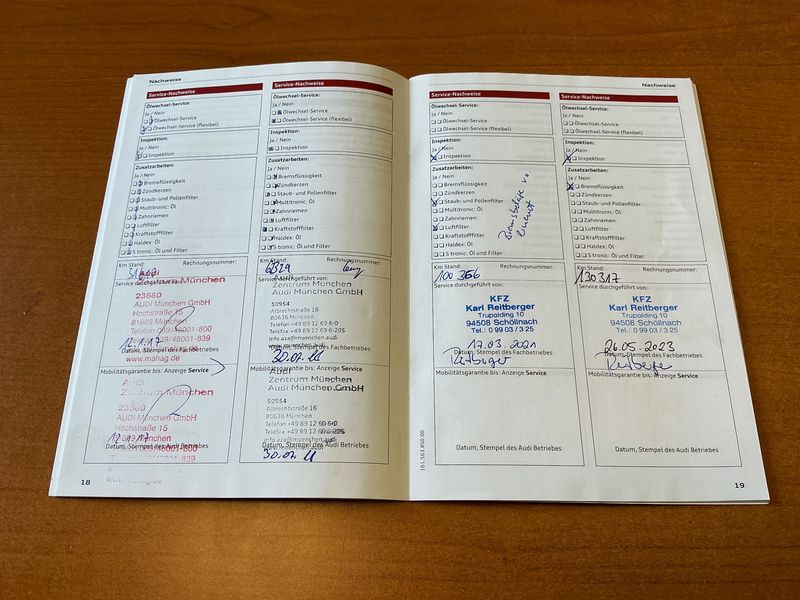 Nachweise
Service-Nachweise
Ölwechsel-Service:
Ja / Nein
Ölwechsel-Service
Ölwechsel-Service (flexibel)
Inspektion:
Ja / Nein
Inspektion
Zusatzarbeiten:
Ja / Nein
Bremsflüssigkeit
Zündkerzen
Staub- und Pollenfilter
Multitronic: Öl
Zahnriemen
Luftfilter
Kraftstofffilter
Haldex: Öl
S tronic: Öl und Filter
Km Stand: Rechnungsnummer:
Service durchgeführt von:
23680
AUDI München GmbH
Hochstraße 15
81669 München
Telefon 089/48001-800
48001-839
www.mahag.de
12.1.17
Datum, Stempel des Fachbetriebes
Mobilitätsgarantie bis: Anzeige Service
Audi
Zentrum München
23680
AUDI München GmbH
Hochstraße 15
Datum, Stempel des Audi Betriebes
18
Service-Nachweise
Ölwechsel-Service:
Ja / Nein
Ölwechsel-Service
Ölwechsel-Service (flexibel)
Inspektion:
Ja / Nein
Inspektion
Zusatzarbeiten:
Ja / Nein
Bremsflüssigkeit
Zündkerzen
Staub- und Pollenfilter
Multitronic: Öl
Zahnriemen
Luftfilter
Kraftstofffilter
Haldex: Öl
S tronic: Öl und Filter
Km Stand: Rechnungsnummer:
Service durchgeführt von:
Audi
Zentrum München
Audi München GmbH
50954
Albrechtstraße 16
80636 München
Telefon +49 89 12 69 6-0
Telefax +49 89 12 69 6-205
Datum, Stempel des Fachbetriebes
Mobilitätsgarantie bis: Anzeige Service
Audi
Zentrum München
Audi München GmbH
50954
Albrechtstraße 16
80636 München
Datum, Stempel des Audi Betriebes
Nachweise
Service-Nachweise
Ölwechsel-Service:
Ja / Nein
Ölwechsel-Service
Ölwechsel-Service (flexibel)
Inspektion:
Ja / Nein
Inspektion
Zusatzarbeiten:
Ja / Nein
Bremsflüssigkeit
Zündkerzen
Staub- und Pollenfilter
Multitronic: Öl
Zahnriemen
Luftfilter
Kraftstofffilter
Haldex: Öl
S tronic: Öl und Filter
Bremsbeläge
Km Stand: Rechnungsnummer:
100 366
Service durchgeführt von:
KFZ
Karl Reitberger
Trupolding 10
94508 Schöllnach
Tel.: 0 99 03 / 3 25
17.03.2021
Datum, Stempel des Fachbetriebes
Reitberger
Mobilitätsgarantie bis: Anzeige Service
Datum, Stempel des Audi Betriebes
161.563.850.00
Service-Nachweise
Ölwechsel-Service:
Ja / Nein
Ölwechsel-Service
Ölwechsel-Service (flexibel)
Inspektion:
Ja / Nein
Inspektion
Zusatzarbeiten:
Ja / Nein
Bremsflüssigkeit
Zündkerzen
Staub- und Pollenfilter
Multitronic: Öl
Zahnriemen
Luftfilter
Kraftstofffilter
Haldex: Öl
S tronic: Öl und Filter
Km Stand: Rechnungsnummer:
130317
Service durchgeführt von:
KFZ
Karl Reitberger
Trupolding 10
94508 Schöllnach
Tel.: 0 99 03 / 3 25
26.05.2023
Datum, Stempel des Fachbetriebes
Reitberger
Mobilitätsgarantie bis: Anzeige Service
Datum, Stempel des Audi Betriebes
19